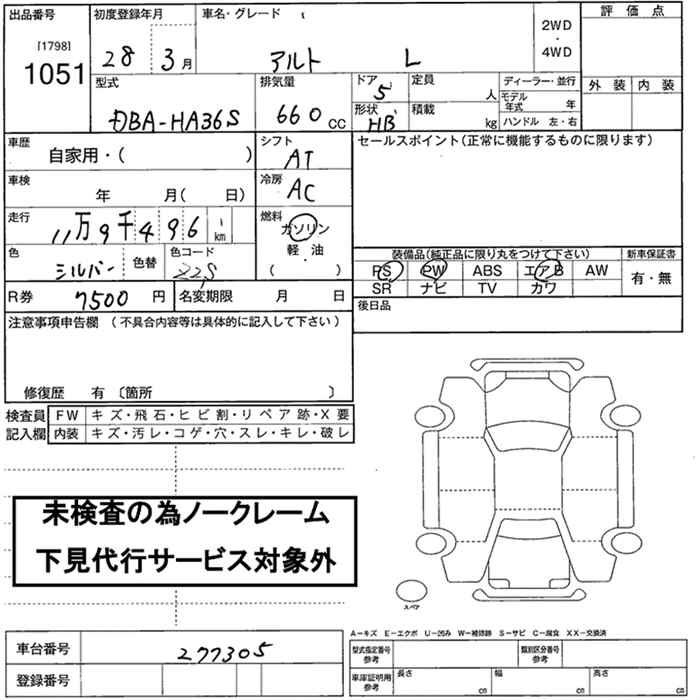 出品番号 初度登録年月 車名・グレード 2WD・4WD 評価点
[1798]
1051 28 3月 アルト L
型式 排気量 ドア 5 定員 人 ディーラー・並行 外装 内装
DBA-HA36S 660 CC 形状 HB 積載 kg モデル年式 年
ハンドル 左・右
車歴 自家用・( ) シフト AT セールスポイント(正常に機能するものに限ります)
車検 年 月( 日) 冷房 AC
走行 11万9千496 km 燃料 ガソリン
軽・油
( ・ )
色 シルバー 色替 色コード Z2S 装備品(純正品に限り丸をつけて下さい) 新車保証書
PS PW ABS エアB AW 有・無
SR ナビ TV カワ
R券 7500 円 名変期限 月 日 後日品
注意事項申告欄 (不具合内容等は具体的に記入して下さい)
修復歴 有 〔箇所 〕
検査員 FW キズ・飛石・ヒビ割・リペア跡・X要
記入欄 内装 キズ・汚レ・コゲ・穴・スレ・キレ・破レ
未検査の為ノークレーム
下見代行サービス対象外
スペア
A-キズ E-エクボ U-凹み W-補修跡 S-サビ C-腐食 XX-交換済
車台番号 277305 型式指定番号 参考 類別区分番号 参考
登録番号 車庫証明用 参考 長さ cm 幅 cm 高さ cm